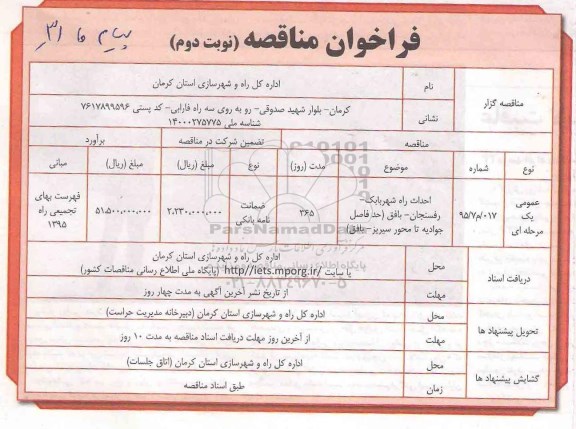 پیام ما ۳۱
فراخوان مناقصه (نوبت دوم)
مناقصه گزار
نام
اداره کل راه و شهرسازی استان کرمان
نشانی
کرمان- بلوار شهید صدوقی- رو به روی سه راه فارابی- کد پستی ۷۶۱۷۸۹۹۵۹۶
شناسه ملی ۱۴۰۰۰۲۷۵۷۷۵
مناقصه
تضمین شرکت در مناقصه
برآورد
نوع
شماره
موضوع
مدت (روز)
نوع
مبلغ (ریال)
مبلغ (ریال)
مبانی
عمومی
یک
مرحله ای
۹۵/۷/م/۰۱۷
احداث راه شهربابک-
رفسنجان- بافق (حد فاصل
جوادیه تا محور سیریز -بافق)
۳۶۵
ضمانت
نامه بانکی
۲.۲۳۰.۰۰۰.۰۰۰
۵۱.۵۰۰.۰۰۰.۰۰۰
فهرست بهای
تجمیعی راه
۱۳۹۵
دریافت اسناد
محل
اداره کل راه و شهرسازی استان کرمان
یا سایت http://iets.mporg.ir/ (پایگاه ملی اطلاع رسانی مناقصات کشور)
مهلت
از تاریخ نشر آخرین آگهی به مدت چهار روز
تحویل پیشنهاد ها
محل
اداره کل راه و شهرسازی استان کرمان (دبیرخانه مدیریت حراست)
مهلت
از آخرین روز مهلت دریافت اسناد مناقصه به مدت ۱۰ روز
گشایش پیشنهاد ها
محل
اداره کل راه و شهرسازی استان کرمان (اتاق جلسات)
زمان
طبق اسناد مناقصه
ParsNamadData
۰۲۱-۸۸۳۴۹۶۷۰-۵